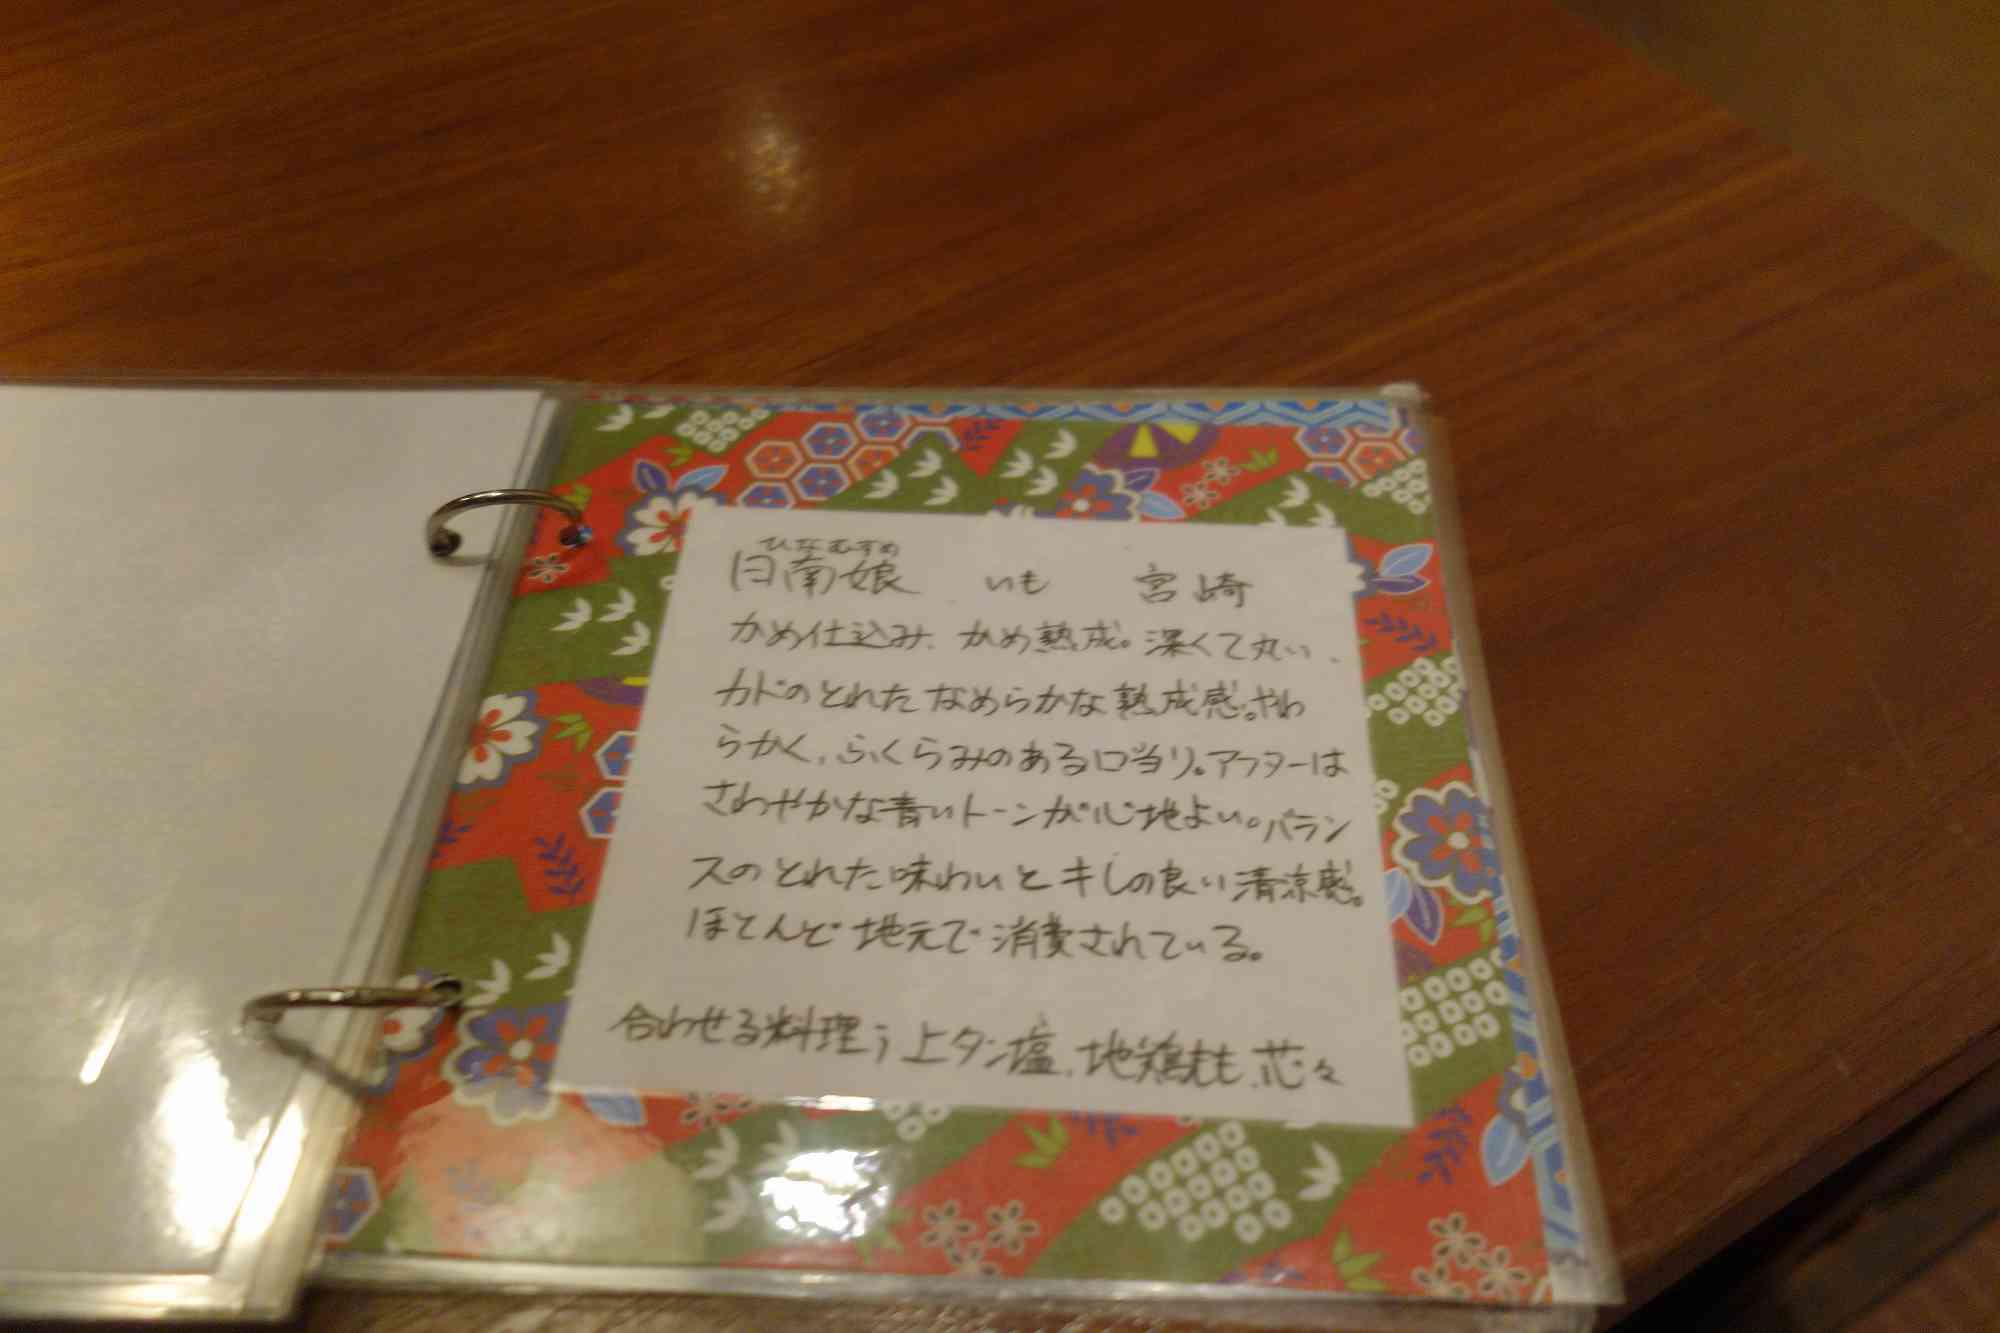 ひなむすめ
日南娘 いも 宮崎
かめ仕込み、かめ熟成。深くて丸い、
カドのとれたなめらかな熟成感。やわ
らかく、ふくらみのある口当り。アフターは
さわやかな青いトーンが心地よい。バラン
スのとれた味わいとキレの良い清涼感。
ほとんど地元で消費されている。
合わせる料理；上タン塩、地鶏もも、芯々